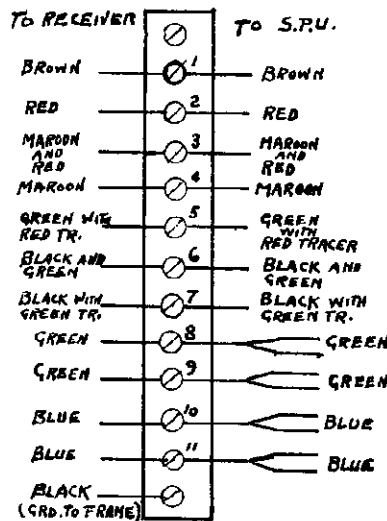 TO RECEIVER TO S.P.U.
BROWN 1 BROWN
RED 2 RED
MAROON
AND
RED 3 MAROON
AND
RED
MAROON 4 MAROON
GREEN WITH
RED TR. 5 GREEN
WITH
RED TRACER
BLACK AND
GREEN 6 BLACK AND
GREEN
BLACK WITH
GREEN TR. 7 BLACK WITH
GREEN TR.
GREEN 8 GREEN
GREEN 9 GREEN
BLUE 10 BLUE
BLUE 11 BLUE
BLACK
(GRD. TO FRAME)